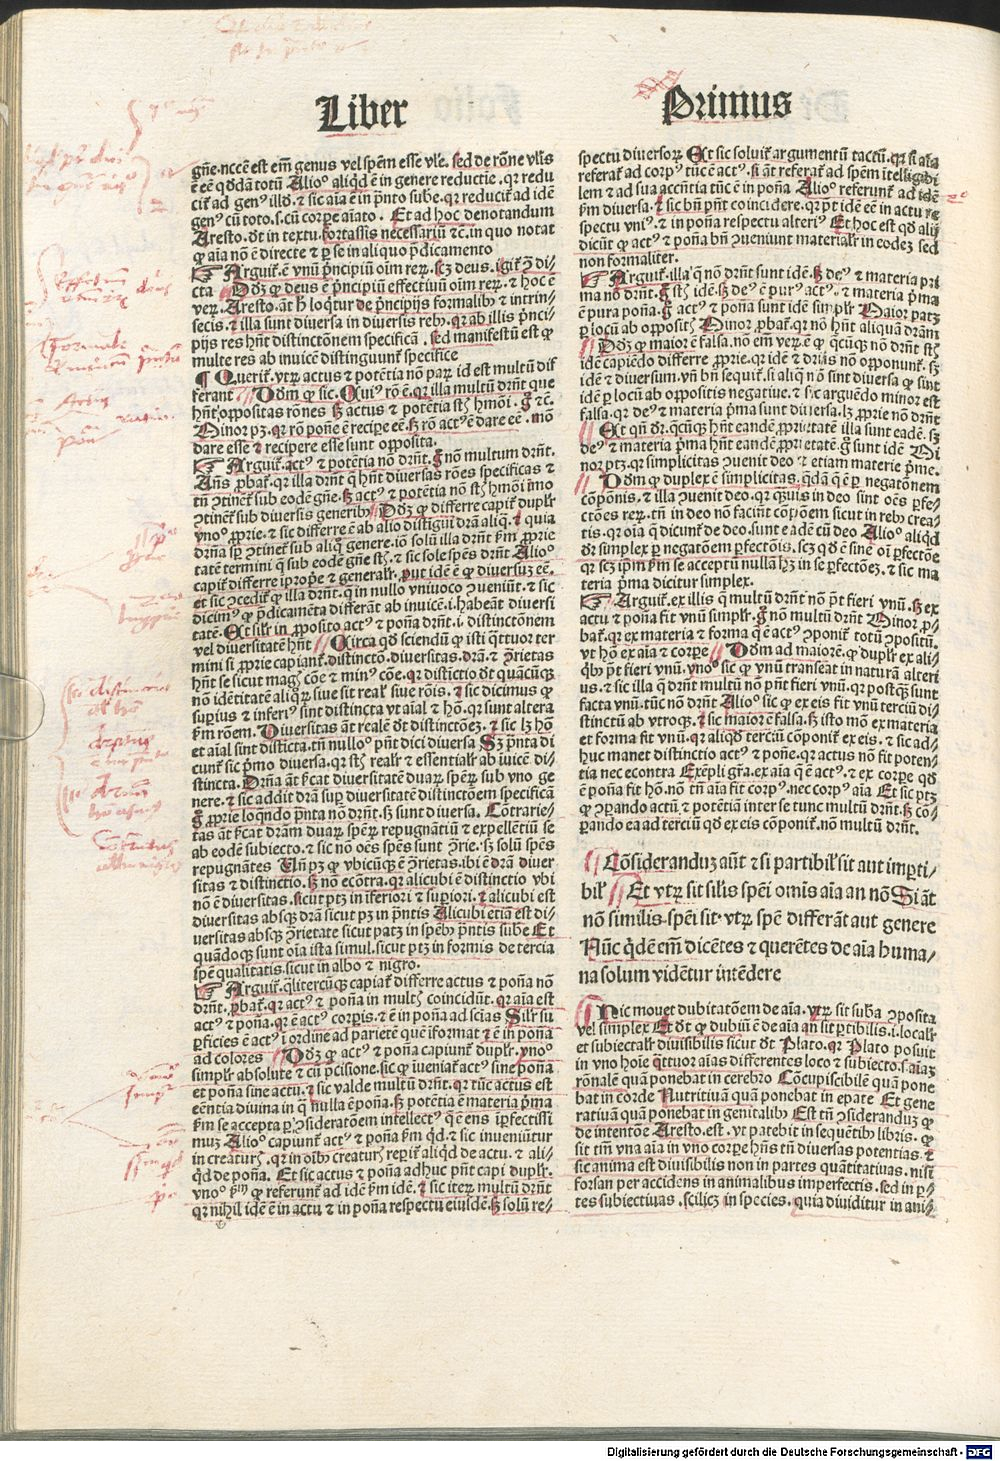 Liber
Primus
gn̄e.nccē est em̄ genus vel spēm esse vl̄e. sed de rōne vl̄is
ē eē qđdā totū Alioꝰ aliqđ ē in genere reductie. qꝛ redu
cit̄ ad genꝰ illđ. ⁊ sic aīa ē in p̄nto sube. qꝛ reducit̄ ad idē
genꝰ cū toto.s.cū corꝑe aīato. Et ad hoc denotandum
Aresto. dt̄ in textu. fortassis necessariū ⁊c. in quo notat
ꝙ aīa nō ē directe ⁊ ꝑ se in aliquo p̄dicamento
Arguit̄. ē vnū p̄ncipiū oīm reꝝ. scꝫ deus. igit̄ ꝯdi-
cta Dōꝫ ꝙ deus ē p̄ncipiū effectiuū oīm reꝝ. ⁊ hoc ē
veꝝ. Aresto. āt h̄ loq̄tur de p̄ncipijs formalib ⁊ intrin-
secis. ⁊ illa sunt diuersa in diuersis rebꝰ. qꝛ ab illis p̄nci-
pijs res hn̄t distinctōnem specificā. sed manifestū est ꝙ
multe res ab inuicē distinguunt̄ specifice
Querit̄. vtꝝ actus ⁊ potētia nō paꝝ id est multū dif
ferant Dōm ꝙ sic. Cuiꝰ rō ē. qꝛ illa multū drn̄t que
hn̄t oppositas rōnes sꝫ actus ⁊ potētia st̄ hmōi. g̊ ⁊c.
Minor pꝫ. qꝛ rō pon̄e ē recipe eē. sꝫ rō actꝰ ē dare eē. mō
dare esse ⁊ recipere esse sunt opposita.
Arguit̄. actꝰ ⁊ potētia nō drn̄t. g̊ nō multum drn̄t.
Ans̄ ꝓbat̄. qꝛ illa drn̄t q̄ hn̄t diuersas rōes specificas ⁊
tn̄ ꝯtinent̄ sub eodē gn̄e. sꝫ actꝰ ⁊ potētia nō st̄ hmōi īmo
ꝯtinent̄ sub diuersis generibꝰ Dōꝫ ꝙ differre capit̄ dupl̄r
vnoꝰ ꝓprie. ⁊ sic differre ē ab alio distīgui drn̄ā aliq̄. ⁊ quia
drn̄a sp̄ ꝯtinet̄ sub aliq̄ genere. iō solū illa drn̄t km̄ ꝓprie
tatē termini q̄ sub eodē gn̄e st̄. ⁊ sic sole spēs drn̄t Alioꝰ
capit̄ differre īpropē ⁊ generalr̄. put idē ē ꝙ diuersuꝫ eē.
et sic ꝯcedit̄ ꝙ illa drn̄t. q̄ in nullo vniuoco ꝯueniūt. ⁊ sic
dicimꝰ ꝙ p̄dicamēta differāt ab inuicē. i. habeāt diuersi
tatē. Et sil̄r in proposito actꝰ ⁊ poña drn̄t. i. distinctōnem
vel diuersitatē hn̄t Circa qđ sciendū ꝙ isti q̄ttuor ter
mini si ꝓprie capiant̄. distinctō. diuersitas. drn̄ā. ⁊ ꝯrietas
hn̄t se sicut magꝭ cōe ⁊ minꝰ cōe. qꝛ distīctio dt̄ quācūqꝫ
nō idētitatē aliqꝝ siue sit realꝭ siue rōis. ⁊ sic dicimus ꝙ
supius ⁊ inferiꝰ sint distincta vt aīal ⁊ hō. qꝛ sunt altera
km̄ rōem. Diuersitas āt realē dt̄ distinctōeꝫ. ⁊ sic lꝫ hō
et aīal sint disticta. tn̄ nulloꝰ pn̄t dici diuersa Sꝫ p̄nta di
cunt̄ sic p̄mo diuersa. qꝛ st̄ realr̄ ⁊ essentialr̄ ab iuicē di-
stincta. Drn̄a āt km̄cat diuersitatē duaꝝ spēꝝ sub vno ge
nere. ⁊ sic addit drn̄ā sup diuersitatē distinctōem specificā
g̊ ꝓprie loqn̄do p̄nta nō drn̄t. sꝫ sunt diuersa. Cōtrarie-
tas āt km̄cat drn̄ām duaꝝ spēꝝ repugnātiū ⁊ expellētiū se
ab eodē subiecto. ⁊ sic nō oēs spēs sunt ꝯrie. sꝫ solū spēs
repugnātes Un̄ pꝫ ꝙ vbicūqꝫ ē ꝯrietas. ibi ē drn̄ā diuer
sitas ⁊ distinctio. sꝫ nō ecōtra. qꝛ alicubi ē distinctio vbi
nō ē diuersitas. sicut ptꝫ in īferiori ⁊ supiori. ⁊ alicubi est
diuersitas absqꝫ drn̄ā sicut pꝫ in p̄ntis Alicubi etiā est di-
uersitas absqꝫ ꝯrietate sicut patꝫ in spēbꝰ p̄ntis sube Et
quādoqꝫ sunt oīa ista simul. sicut ptꝫ in formis de tercia
spē qualitatis. sicut in albo ⁊ nigro.
Arguit̄. q̄litercūqꝫ capiat̄ differre actus ⁊ poña nō
drn̄t. ꝓbat̄. qꝛ actꝰ ⁊ poña in multꝭ coincidūt. qꝛ aīa est
actꝰ ⁊ poña. qꝛ ē actꝰ corpis. ⁊ ē in poña ad sciās Sil̄r su
ꝑficies ē actꝰ ī ordine ad pariete quē īformat ⁊ ē in poña
ad colores Dōꝫ ꝙ actꝰ ⁊ poña capiunt̄ dupl̄r. vnoꝰ
simplr̄ absolute ⁊ cū p̄cisione. sic ꝙ iueniat̄ actꝰ sine poña
et poña sine actu. ⁊ sic valde multū drn̄t. qꝛ tūc actus est
eēntia diuina in q̄ nulla ē poña. sꝫ potētia ē materia p̄ma
km̄ se accepta ꝑ ꝯsideratōem intellectꝰ q̄ ē ens īperfectissi
muꝫ Alioꝰ capiunt̄ actꝰ ⁊ poña km̄ qđ. ⁊ sic inueniūtur
in creaturꝭ. qꝛ in oībꝰ creaturꝭ reꝑit̄ aliqđ de actu. ⁊ ali-
qđ de poña. Et sic actus ⁊ poña adhuc pn̄t capi dupl̄r.
vnoꝰ km̄ ꝙ referunt̄ ad idē km̄ idē. ⁊ sic iteꝝ multū drn̄t
qꝛ nihil idē ē in actu ⁊ in poña respectu eiusdē. sꝫ solū re-
spectu diuersoꝝ Et sic soluit̄ argumentū tactū. qꝛ si aīa
referat̄ ad corpꝰ tūc ē actꝰ. si āt referat̄ ad spēm ītelligibi
lem ⁊ ad sua accn̄tia tūc ē in poña Alioꝰ referunt̄ ad idē
km̄ diuersa. ⁊ sic bn̄ pn̄t coincidere. qꝛ pt̄ idē eē in actu re
spectu vniꝰ. ⁊ in poña respectu alteriꝰ Et hoc est qđ alij
dicūt ꝙ actꝰ ⁊ poña bn̄ ꝯueniunt materialr̄ in eodeꝫ sed
non formaliter.
Arguit̄. illa q̄ nō drn̄t sunt idē. sꝫ deꝰ ⁊ materia pri
ma nō drn̄t. g̊ st̄ idē. sꝫ deꝰ ē purꝰ actꝰ. ⁊ materia p̄ma
ē pura poña. g̊ actꝰ ⁊ poña sunt idē simplr̄ Maior patꝫ
ꝑ locū ab oppositꝭ Minor ꝓbat̄. qꝛ nō hn̄t aliquā drn̄ām
Dōꝫ ꝙ maior ē falsa. nō em̄ veꝝ ē ꝙ q̄cūqꝫ nō drn̄t st̄
idē capiēdo differre ꝓprie. qꝛ idē ⁊ drn̄s nō opponunt̄. sꝫ
idē ⁊ diuersum. vn̄ bn̄ sequit̄. si aliq̄ nō sint diuersa ꝙ sint
idē ꝑ locū ab oppositis negatiue. ⁊ sic arguēdo minor est
falsa. qꝛ deꝰ ⁊ materia p̄ma sunt diuersa. lꝫ ꝓprie nō drn̄t
Et qn̄ dr̄. q̄cūqꝫ hn̄t eandē ꝓprietatē illa sunt eadē. sꝫ
deꝰ ⁊ materia p̄ma hn̄t eandē ꝓprietatē. g̊ sunt idē Mi
nor ptꝫ. qꝛ simplicitas ꝯuenit deo ⁊ etiam materie p̄me.
Dōm ꝙ duplex ē simplicitas. q̄dā q̄ ē ꝑ negatōnem
cōpōnis. ⁊ illa ꝯuenit deo. qꝛ q̄uis in deo sint oēs ꝑfe-
ctōes reꝝ. tn̄ in deo nō faciūt cōpōem sicut in rebꝰ crea-
tis. qꝛ oīa q̄ dicunt̄ de deo. sunt eadē cū deo Alioꝰ aliqđ
dr̄ simplex ꝑ negatōem ꝑfectōis. scꝫ qđ ē sine oī ꝑfectōe
qꝛ scꝫ ipm̄ km̄ se acceptū nullā hꝫ in se ꝑfectōeꝫ. ⁊ sic ma
teria p̄ma dicitur simplex.
Arguit̄. ex illis q̄ multū drn̄t nō pt̄ fieri vnū. sꝫ ex
actu ⁊ poña fit vnū simplr̄. g̊ nō multū drn̄t Minor ꝓ-
bat̄. qꝛ ex materia ⁊ forma q̄ ē actꝰ ꝯponit̄ totū ꝯpositū.
vt hō ex aīa ⁊ corpe Dōm ad maiorē. ꝙ dupl̄r ex ali-
qbꝰ pt̄ fieri vnū. vnoꝰ sic ꝙ vnū transeat in naturā alteri
us. ⁊ sic illa q̄ drn̄t multū nō pn̄t fieri vnū. qꝛ postq̄ꝫ sunt
facta vnū. tūc nō drn̄t Alioꝰ sic ꝙ ex eis fit vnū terciū di-
stinctū ab vtroqꝫ. ⁊ sic maior ē falsa. sꝫ isto mō ex materia
et forma fit vnū. qꝛ aliqđ terciū cōponit̄ ex eis. ⁊ sic ad-
huc manet distinctio actꝰ ⁊ pon̄e. qꝛ actus nō fit poten-
tia nec econtra Exēpli gr̄a. ex aīa q̄ ē actꝰ. ⁊ ex corpe qđ
ē poña fit hō. nō tn̄ aīa fit corpꝰ. nec corpꝰ aīa Et sic ptꝫ
ꝙ ꝯparando actū ⁊ potētiam inter se tunc multū drn̄t. sꝫ cō-
parando ea ad terciū qđ ex eis cōponit̄. nō multū drn̄t.
Cōsiderandum aūt ⁊ si partibilꝭ sit aut imꝑti-
bilꝭ Et vtꝝ sit silis spēi omīs aīa an nō Si āt
nō similis spēi sit. vtꝝ spē differāt aut genere
Nūc q̄dē em̄ dicētes ⁊ querētes de aīa huma-
na solum videntur intēdere
Hic mouet dubitatōem de aīa. vtꝝ sit suba ꝯposita
vel simplex Et dt̄ ꝙ dubiū ē de aīa an sit ptibilis. i. localr̄
et subiectalr̄ diuisibilis sicut dt̄ Plato. qꝛ Plato posuit
in vno hoīe q̄ttuor aīas differentes loco ⁊ subiecto. s. aīaꝫ
rōnalē quā ponebat in cerebro Cōcupiscibilē quā pone
bat in corde Nutritiuā quā ponebat in epate Et gene
ratiuā quā ponebat in genitalibꝰ Est tn̄ ꝯsideranduꝫ ꝙ
de intentōe Aresto. est. vt patebit in sequētibꝰ libris. ꝙ
sit tm̄ vna aīa in vno corpe hn̄s tn̄ diuersas potentias. ⁊
sic anima est diuisibilis non in partes quātitatiuas. nisi
forsan per accidens in animalibus imperfectis. sed in p-
tes subiectiuas. scilicꝫ in species. quia diuiditur in ani-
Digitalisierung gefördert durch die Deutsche Forschungsgemeinschaft - DFG